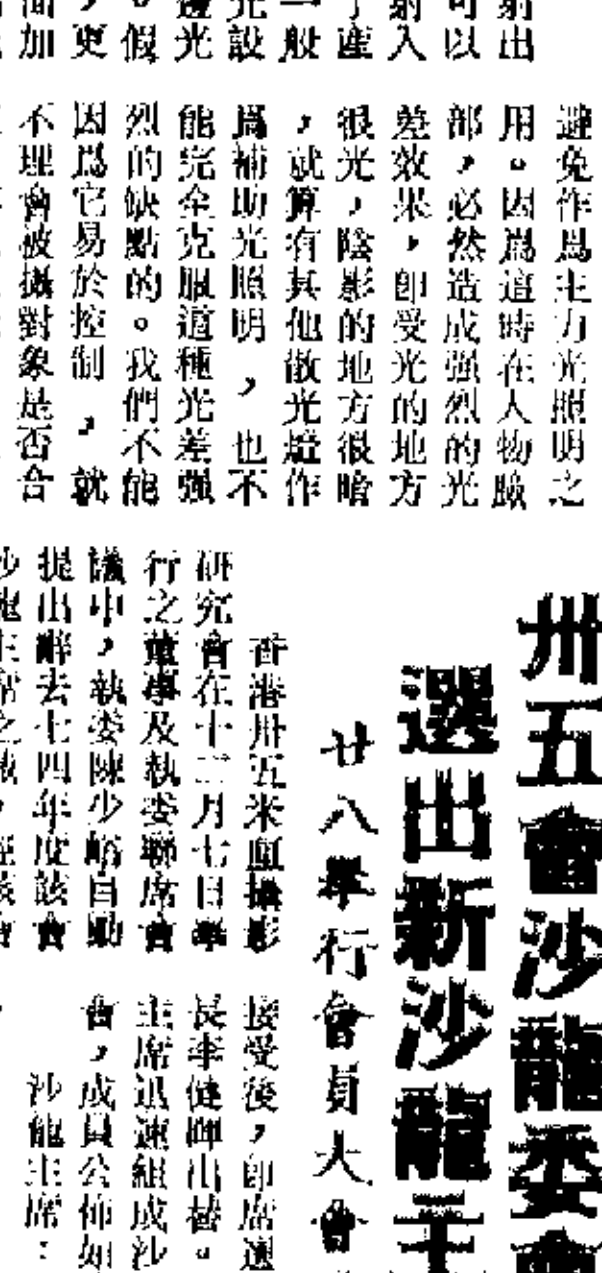 射出
可以
射入
了產
一般
光設
邊光
。假
，更
面加
避免作爲主力光照明之
用。因爲這時在人物臉
部，必然造成强烈的光
差效果，即受光的地方
很光，陰影的地方很暗
，就算有其他散光燈作
爲補助光照明，也不
能完全克服這種光差强
烈的缺點的。我們不能
因爲它易於控制，就
不理會被攝對象是否合
卅五會沙龍委會
選出新沙龍主
廿八舉行會員大會
香港卅五米厘攝影
研究會在十二月七日舉
行之董事及執委聯席會
議中，執委陳少峭自動
提出辭去七四年度該會
沙龍主席之職，經該會
接受後，即席選
長李健 出替。
主席迅速組成沙
會，成員公佈如
沙龍主席：